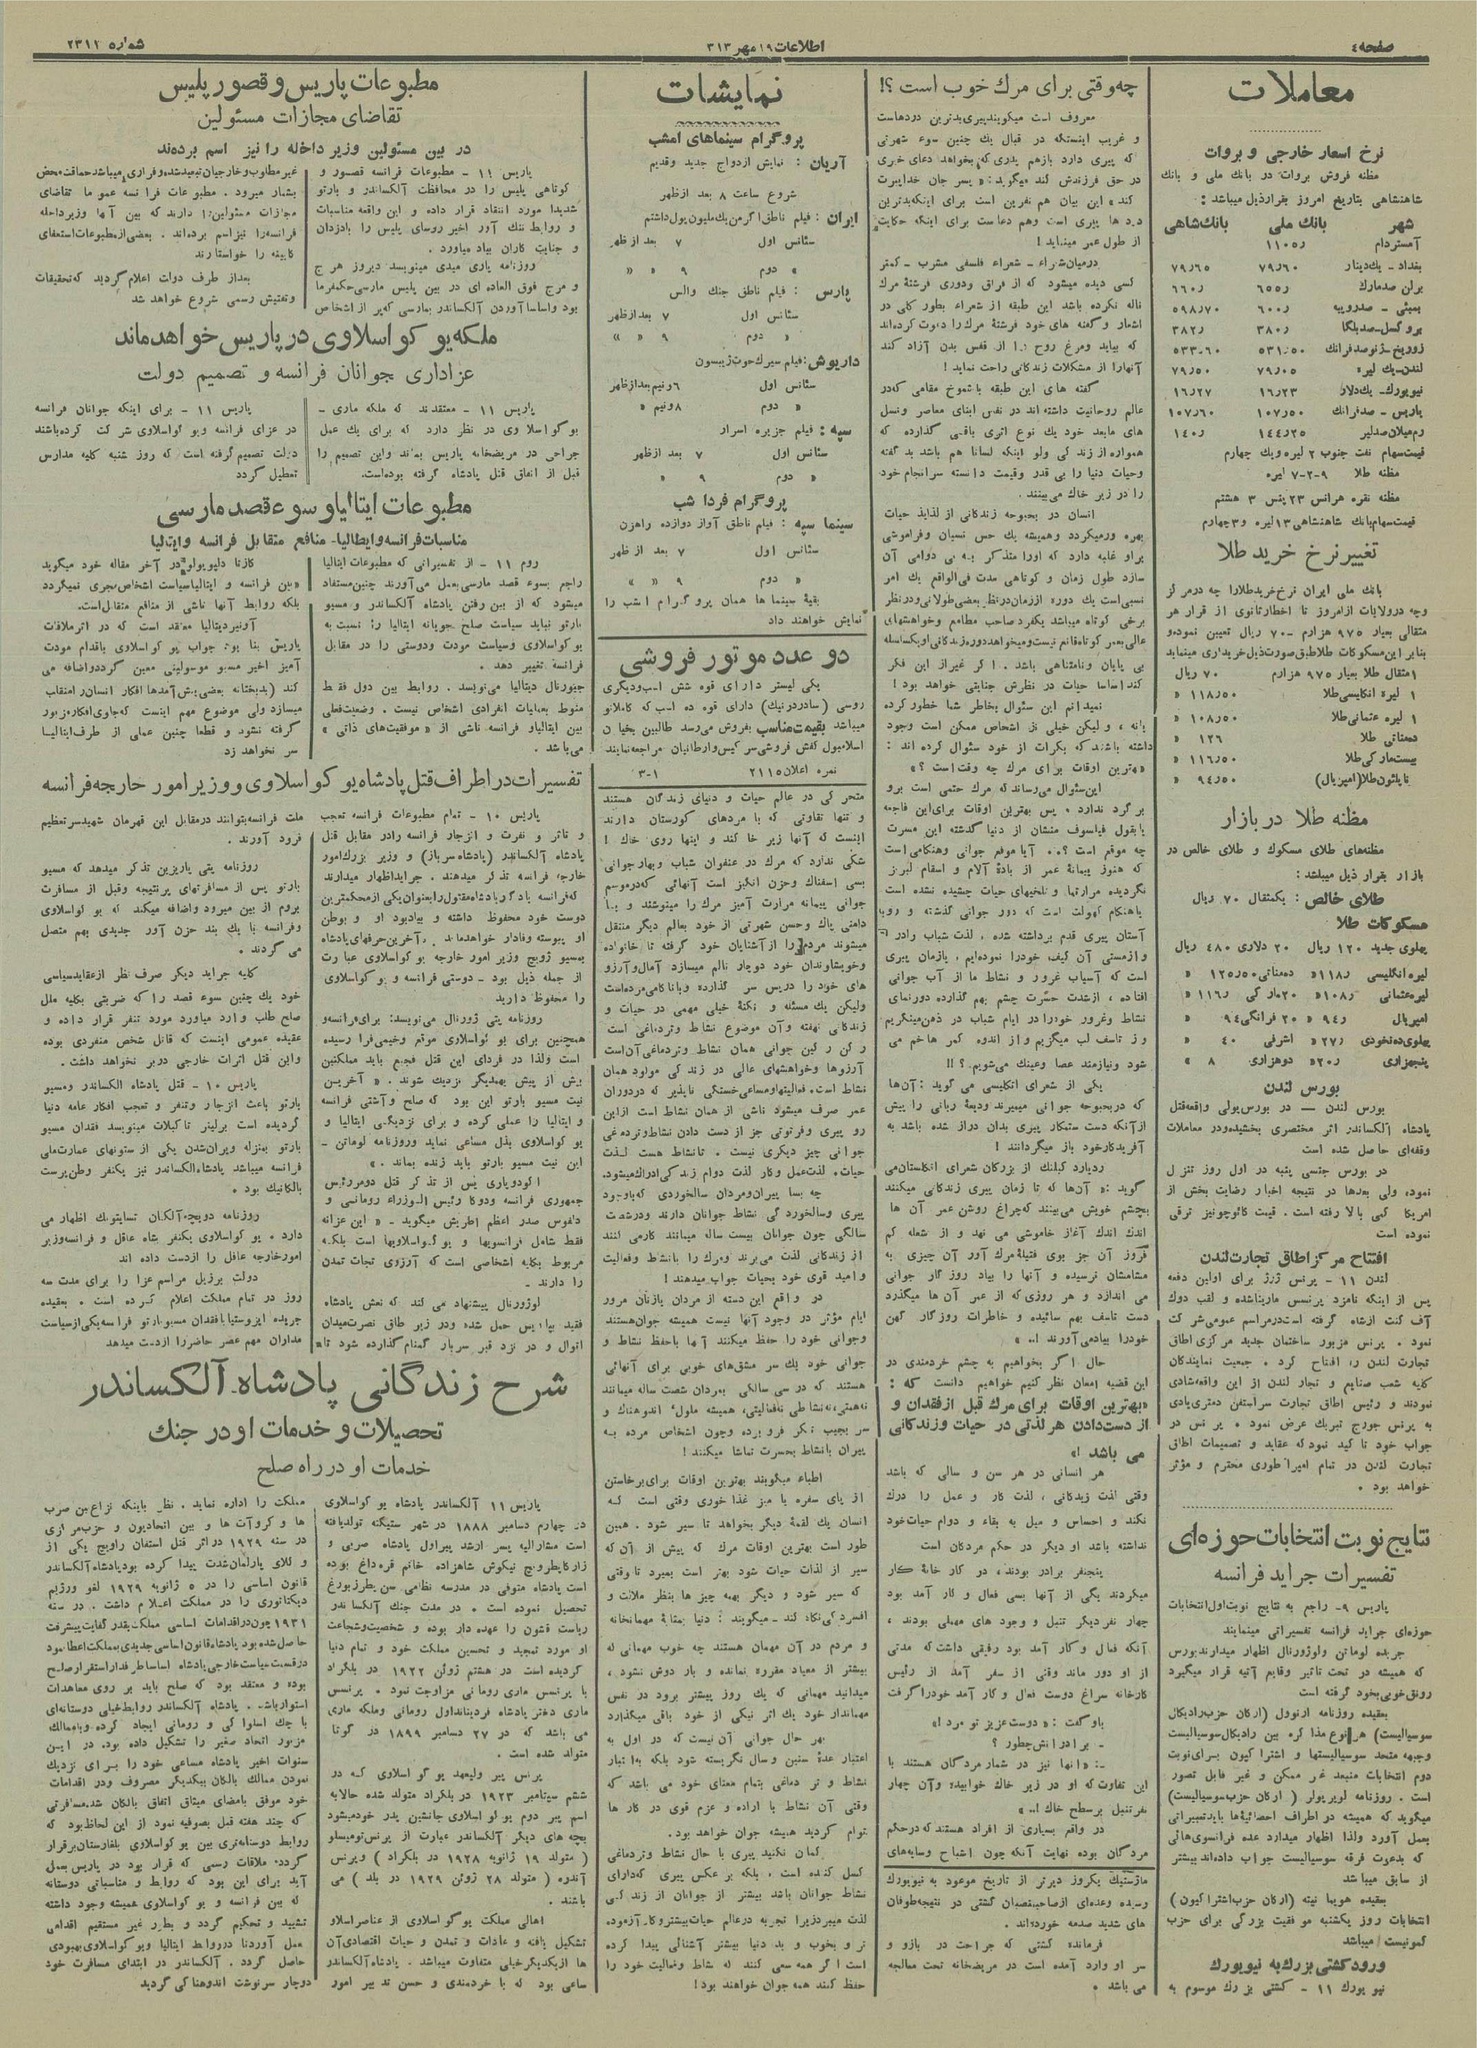 صفحه ٤
اطلاعات ١٩ مهر ٣١٣
شماره ٢٣١٢
معاملات
نرخ اسعار خارجی و بروات
مظنه فروش بروات در بانك ملی و بانك
شاهنشاهی بتاریخ امروز بقرارذیل میباشد :
شهر بانك ملی بانك شاهی
آمستردام ١١٠٥ر
بغداد - یك دینار ٧٩ر٦٠ ٧٩ر٦٥
برلن صدمارك ٦٥٥ر ٦٦٠ر
بمبئی - صدروپیه ٦٠٠ر ٥٩٨ر٧٠
بروکسل-صدبلگا ٣٨٠ر ٣٨٢ر
زوریخ-ژنوصدفرانك ٥٣١ر٥٠ ٥٣٣-٦٠
لندن-یك لیره ٧٩ر٠٥ ٧٩ر٥٠
نیویورك-یك دلار ١٦ر٢٣ ١٦ر٢٧
پاریس - صدفرانك ١٠٧ر٥٠ ١٠٧ر٦٠
رم میلان صدلیر ١٤٤ر٢٥ ١٤٠ر
قیمت سهام نفت جنوب ٢ لیره ویك چهارم
مظنه طلا ٩-٢-٧ لیره
مظنه نقره هرانس ٢٣ پنس ٣ هشتم
قیمت سهام بانك شاهنشاهی ١٣ لیره و٣ چهارم
تغییر نرخ خرید طلا
بانك ملی ایران نرخ خرید طلارا چه درمرکز
وچه درولایات ازامروز تا اخطارثانوی از قرار هر
مثقالی بعیار ٩٧٥ هزارم ٧٠- ریال تعیین نموده و
بنابر این مسکوکات طلاطبق صورت ذیل خریداری مینماید
١ مثقال طلا بعیار ٩٧٥ هزارم ٧٠ ریال
١ لیره انگلیسی طلا ١١٨ر٥٠ «
١ لیره عثمانی طلا ١٠٨ر٥٠ «
ده مناتی طلا ١٢٦ «
بیست مارکی طلا ١١٦ر٥٠ «
ناپلئون طلا(امپریال) ٩٤ر٥٠ «
مظنه طلا در بازار
مظنه‌های طلای مسکوك و طلای خالص در
بازار بقرار ذیل میباشد :
طلای خالص : یکمثقال ٧٠ ریال
مسکوکات طلا
پهلوی جدید ١٢٠ ریال ٢٠ دلاری ٤٨٠ ریال
لیره انگلیسی ١١٨ر« ده مناتی ١٢٥ر٥٠ «
لیره عثمانی ١٠٨ر« ٢٠ مارکی ١١٦ر «
امپریال ٩٤ر « ٢٠ فرانکی ٩٤ «
پهلوی ده نخودی ٢٧ر« اشرفی ٤٠ «
پنجهزاری ٢٠ر« دوهزاری ٨ «
بورس لندن
بورس لندن — در بورس پولی واقعه قتل
پادشاه الکساندر اثر مختصری بخشیده ودر معاملات
وقفه‌ای حاصل شده است
در بورس جنسی پنبه در اول روز تنزل
نموده، ولی بعدها در نتیجه اخبار رضایت بخش از
امریکا کمی بالا رفته است . قیمت کائوچونیز ترقی
نموده است
افتتاح مرکز اطاق تجارت لندن
لندن ١١ - پرنس ژرژ برای اولین دفعه
پس از اینکه نامزد پرنسس مارینا شده و لقب دوك
آف کنت ازشاه گرفته است درمراسم عمومی شرکت
نمود . پرنس مزبور ساختمان جدید مرکزی اطاق
تجارت لندن را افتتاح کرد . جمعیت نمایندگان
کلیه شعب صنایع و تجار لندن از این واقعه شادی
نمودند و رئیس اطاق تجارت سراستفن دمتری یادی
به پرنس جورج تبریك عرض نمود . پرنس در
جواب خود تاکید نمود که عقاید و تصمیمات اطاق
تجارت لندن در تمام امپراطوری محترم و مؤثر
خواهد بود .
نتایج نوبت انتخابات حوزه‌ای
تفسیرات جراید فرانسه
پاریس ٩- راجع به نتایج نوبت اول انتخابات
حوزه‌ای جراید فرانسه تفسیراتی مینمایند
جریده لوماتن ولوژورنال اظهار میدارند بورس
که همیشه در تحت تاثیر وقایع آتیه قرار میگیرد
رونق خوبی بخود گرفته است
بعقیده روزنامه ارنودل (ارکان حزب رادیکال
سوسیالیست) هر نوع مذاکره بین رادیکال سوسیالیست
وجبهه متحد سوسیالیستها و اشتراکیون برای نوبت
دوم انتخابات منبعد غیر ممکن و غیر قابل تصور
است . روزنامه لوپوپولر ( ارکان حزب سوسیالیست)
میگوید که همیشه در اطراف احصائیه‌ها بایدتعبیراتی
بعمل آورد ولذا اظهار میدارد عده فرانسوی‌هائی
که بدعوت فرقه سوسیالیست جواب داده‌اند بیشتر
از سابق میباشد
بعقیده هومانیته (ارکان حزب اشتراکیون)
انتخابات روز یکشنبه موفقیت بزرگی برای حزب
کمونیست میباشد
ورود کشتی بزرك به نیویورك
نیویورك ١١ - کشتی بزرك موسوم به
چه وقتی برای مرك خوب است ؟!
معروف است میگویند پیری بدترین دردهاست
و غریب اینستکه در قبال یك چنین سوء شهرتی
که پیری دارد بازهم پدری که بخواهد دعای خیری
در حق فرزندش کند میگوید: « پسر جان خدا پیرت
کند » این بیان هم نفرین است برای اینکه بدترین
دردها پیری است وهم دعاست برای اینکه حکایت
از طول عمر مینماید !
درمیان شعراء - شعراء فلسفی مشرب - کمتر
کسی دیده میشود که از فراق ودوری فرشته مرك
ناله نکرده باشد این طبقه از شعراء بطور کلی در
اشعار وگفته های خود فرشته مرك را دعوت کرده‌اند
که بیاید ومرغ روح را از قفس بدن آزاد کند
آنهارا از مشکلات زندگانی راحت نماید !
گفته های این طبقه باشموخ مقامی که در
عالم روحانیت داشته اند در نفس ابنای معاصر ونسل
های مابعد خود یك نوع اثری باقی گذارده که
همواره از زندگی ولو اینکه لسانا هم باشد بد گفته
وحیات دنیا را بی قدر وقیمت دانسته سرانجام خود
را در زیر خاك می بینند .
انسان در بحبوحه زندگانی از لذایذ حیات
بهره ورمیگردد وهمیشه یك حس نسیان وفراموشی
براو غلبه دارد که اورا متذکر به بی دوامی آن
سازد طول زمان و کوتاهی مدت فی الواقع یك امر
نسبی است یك دوره اززمان در نظر بعضی طولانی ودرنظر
برخی کوتاه میباشد یکفرد صاحب مطامع وخواهشهای
عالی بعمر کوتاه قانع نیست ومیخواهد دوره زندگانی او یکسلسله
بی پایان ونامتناهی باشد . اگر غیراز این فکر
کند اساسا حیات در نظرش جنایتی خواهد بود !
نمیدانم این سئوال بخاطر شما خطور کرده
یانه ، ولیکن خیلی از اشخاص ممکن است وجود
داشته باشند که بکرات از خود سئوال کرده اند :
«بهترین اوقات برای مرك چه وقت است ؟ »
این سئوال می‌رساند که مرك حتمی است برو
برگرد ندارد . پس بهترین اوقات برای این فاجعه
یابقول فیلسوف منشان از دنیا گذشته این مسرت
چه موقع است ؟.. آیا موقع جوانی وهنگامی است
که هنوز پیمانه عمر از بادهٔ آلام و اسقام لبریز
نگردیده مرارتها و تلخیهای حیات چشیده نشده است
یا هنگام کهولت است که دور جوانی گذشته و روبه
آستان پیری قدم برداشته شده ، لذت شباب رادر ك
وازمستی آن کیف خودرا نموده‌ایم ، یازمان پیری
است که آسیاب غرور و نشاط ما از آب جوانی
افتاده ، ازشدت حسرت چشم بهم گذارده دورنمای
نشاط وغرور خودرا در ایام شباب در ذهن مینگریم
وز تاسف لب میگزیم واز اندوه کمر هاخم می
شود ونیازمند عصا وعینك می‌شویم .؟ !!
یکی از شعرای انگلیسی می گوید : آن‌ها
که دربحبوحه جوانی میمیرند ودیعهٔ ربانی را پیش
ازآنکه دست ستمکار پیری بدان دراز شده باشد به
آفریدکار خود باز میگردانند !
ردیارد کپلنك از بزرگان شعرای انگلستان می
گوید : « آن‌ها که تا زمان پیری زندگانی میکنند
بچشم خویش می‌بینند که چراغ روشن عمر آن ها
اندك اندك آغاز خاموشی می نهد و از شعله کم
فروز آن جز بوی فتیله مرك آور آن چیزی به
مشامشان نرسیده و آنها را بیاد روز گار جوانی
می اندازد و هر روزی که از عمر آن ها میگذرد
دست تاسف بهم سائیده و خاطرات روزگار کهن
خودرا بیاد می آورند !.. »
حال اگر بخواهیم به چشم خردمندی در
این قضیه امعان نظر کنیم خواهیم دانست که :
«بهترین اوقات برای مرك قبل از فقدان و
از دست دادن هر لذتی در حیات وزندگانی
می باشد !»
هر انسانی در هر سن و سالی که باشد
وقتی لذت زندگانی ، لذت کار و عمل را درك
نکند و احساس و میل به بقاء و دوام حیات خود
نداشته باشد او دیگر در حکم مردگان است
پنجنفر برادر بودند ، در کار خانهٔ کار
میکردند یکی از آنها بسی فعال و کار آمد بود
چهار نفردیگر تنبل و وجود های مهملی بودند ،
آنکه فعال و کار آمد بود رفیقی داشت که مدتی
از او دور ماند وقتی از سفر آمد از رئیس
کارخانه سراغ دوست فعال و کار آمد خودرا گرفت
باو گفت : « دوست عزیز تو مرد !»
- برادرانش چطور ؟
-: « آنها نیز در شمار مردگان هستند با
این تفاوت که او در زیر خاك خوابیده وآن چهار
نفر تنبل بر سطح خاك !.. »
در واقع بسیاری از افراد هستند که درحکم
مردگان بوده نهایت آنکه چون اشباح وسایه‌های
ماژستیك یکروز دیرتر از تاریخ موعود به نیویورك
رسیده وعده‌ای ازصاحبمنصبان کشتی در نتیجه طوفان
های شدید صدمه خورده‌اند .
فرمانده کشتی که جراحت در بازو و
سر او وارد آمده است در مریضخانه تحت معالجه
می باشد .
نمایشات
پروگرام سینماهای امشب
آریان : نمایش ازدواج جدید وقدیم
شروع ساعت ٨ بعد ازظهر
ایران : فیلم ناطق اگر من یك ملیون پول داشتم
سئانس اول ٧ بعد از ظهر
« دوم ٩ « «
پارس : فیلم ناطق جنك والس
سئانس اول ٧ بعد ازظهر
« دوم ٩ « «
داریوش : فیلم سیرك حوت ژیبسون
سئانس اول ٦ ونیم بعدازظهر
« دوم ٨ ونیم «
سپه : فیلم جزیره اسرار
سئانس اول ٧ بعد ازظهر
« دوم ٩ «
پروگرام فردا شب
سینما سپه : فیلم ناطق آواز دوازده راهزن
سئانس اول ٧ بعد از ظهر
« دوم ٩ « «
بقیهٔ سینما ها همان پروگرام امشب را
نمایش خواهند داد
دو عدد موتور فروشی
یکی لیستر دارای قوه شش اسب ودیگری
روسی (سادردنیك) دارای قوه ده اسب که کاملا نو
میباشد بقیمت مناسب بفروش می‌رسد طالبین بخیابان
اسلامبول کفش فروشی سرکیس وارطانیان مراجعه نمایند
نمره اعلان ٢١١٥ ٣-١
متحرکی در عالم حیات و دنیای زندگان هستند
و تنها تفاوتی که با مردهای گورستان دارند
اینست که آنها زیر خاکند و اینها روی خاك !
شکی ندارد که مرك در عنفوان شباب وبهار جوانی
بسی اسفناك وحزن انگیز است آنهائی که درموسم
جوانی پیمانه مرارت آمیز مرك را مینوشند و با
دامنی پاك وحسن شهرتی از خود بعالم دیگر منتقل
میشوند مردم را از آشنایان خود گرفته تا خانواده
وخویشاوندان خود دوچار تالم میسازد آمال وآرزو
های خود را درپس سر گذارده وباناکامی مرده‌است
ولیکن یك مسئله و نکتهٔ خیلی مهمی در حیات و
زندگانی نهفته وآن موضوع نشاط وتردماغی است
رکن رکین جوانی همان نشاط وتردماغی آن است
آرزوها وخواهشهای عالی در زندگی مولود همان
نشاط است . فعالیتها ومساعی خستگی ناپذیر که در دوران
عمر صرف میشود ناشی از همان نشاط است ازاین
رو پیری وفرتوتی جز از دست دادن نشاط وتردماغی
جوانی چیز دیگری نیست . تانشاط هست لذت
حیات، لذت عمل وکار لذت دوام زندگی ادراك میشود.
چه بسا پیران ومردان سالخوردی که باوجود
پیری وسالخوردگی نشاط جوانان دارند ودرشصت
سالگی چون جوانان بیست ساله میمانند کار می کنند
از زندگانی لذت می برند ومرك را بانشاط وفعالیت
وامید قوی خود بحیات جواب میدهند !
در واقع این دسته از مردان یازنان مرور
ایام مؤثر در وجود آنها نیست همیشه جوان هستند
وجوانی خود را حفظ میکنند آنها باحفظ نشاط و
جوانی خود یك سر مشق‌های خوبی برای آنهائی
هستند که در سی سالگی بمردان شصت ساله میمانند
نه همتی، نه نشاطی نه فعالیتی، همیشه ملول، اندوهناك و
سر بجیب تفکر فرو برده وچون اشخاص مرده به
پیران بانشاط بحسرت تماشا میکنند !
اطباء میگویند بهترین اوقات برای برخاستن
از پای سفره یا میز غذا خوری وقتی است که
انسان یك لقمهٔ دیگر بخواهد تا سیر شود . همین
طور است بهترین اوقات مرك که پیش از آن که
سیر از لذات حیات شود بهتر است بمیرد تا وقتی
که سیر شود و دیگر بهمه چیز ها بنظر ملالت و
افسردگی نگاه کند - میگویند : دنیا بمثابهٔ مهمانخانه
و مردم در آن مهمان هستند چه خوب مهمانی که
بیشتر از میعاد مقرره نمانده و بار دوش نشود ،
میدانید مهمانی که یك روز پیشتر برود در نفس
مهماندار خود یك اثر نیکی از خود باقی میگذارد
بهر حال جوانی آن نیست که در اول به
اعتبار عدهٔ سنین وسال نگریسته شود بلکه به اعتبار
نشاط و تر دماغی بتمام معنای خود می باشد که
وقتی آن نشاط با اراده و عزم قوی در کار ها
توام گردید همیشه جوان خواهد بود.
گمان نکنید پیری با حال نشاط وتردماغی
کسل کننده است ، بلکه بر عکس پیری که دارای
نشاط جوانان باشد بیشتر از جوانان از زندگی
لذت میبرد زیرا تجربه درعالم حیات بیشتر وکار آزموده
تر و بخوب و بد دنیا بیشتر آشنائی پیدا کرده
است اگر همه سعی کنند که نشاط وفعالیت خود را
حفظ کنند همه جوان خواهند بود !
مطبوعات پاریس و قصور پلیس
تقاضای مجازات مسئولین
در بین مسئولین وزیر داخله را نیز اسم برده‌اند
پاریس ١١ - مطبوعات فرانسه قصور و
کوتاهی پلیس را در محافظت آلکساندر و بارتو
شدیدا مورد انتقاد قرار داده و این واقعه مناسبات
و روابط ننك آور اخیر روسای پلیس را بادزدان
و جنایت کاران بیاد میاورد .
روزنامه پاری میدی مینویسد دیروز هرج
و مرج فوق العاده ای در بین پلیس مارسی حکمفرما
بود واساسا آوردن آلکساندر بمارسی که پر از اشخاص
غیر مطلوب وخارجیان تبعید شده وفراری میباشد حماقت محض
بشمار میرود . مطبوعات فرانسه عموما تقاضای
مجازات مسئولین را دارند که بین آنها وزیر داخله
فرانسه را نیز اسم برده‌اند . بعضی از مطبوعات استعفای
کابینه را خواستارند
بعد از طرف دولت اعلام گردید که تحقیقات
وتفتیش رسمی شروع خواهد شد
ملکه یوگواسلاوی در پاریس خواهد ماند
عزاداری جوانان فرانسه و تصمیم دولت
پاریس ١١ - معتقدند که ملکه ماری -
یوگواسلاوی در نظر دارد که برای یك عمل
جراحی در مریضخانه پاریس بماند واین تصمیم را
قبل از اتفاق قتل پادشاه گرفته بوده‌است.
پاریس ١١ - برای اینکه جوانان فرانسه
در عزای فرانسه ویوگواسلاوی شرکت کرده‌باشند
دولت تصمیم گرفته است که روز شنبه کلیه مدارس
تعطیل گردد
مطبوعات ایتالیا و سوء قصد مارسی
مناسبات فرانسه وایطالیا - منافع متقابل فرانسه وایتالیا
روم ١١ - از تفسیراتی که مطبوعات ایتالیا
راجع بسوء قصد مارسی بعمل می آورند چنین مستفاد
میشود که از بین رفتن پادشاه آلکساندر و مسیو
بارتو نباید سیاست صلح جویانه ایتالیا را نسبت به
یوگواسلاوی وسیاست مودت ودوستی را در مقابل
فرانسه تغییر دهد .
جیورنال دیتالیا می‌نویسد . روابط بین دول فقط
منوط بعملیات انفرادی اشخاص نیست . وضعیت فعلی
بین ایتالیاو فرانسه ناشی از « موفقیت‌های ذاتی »
می باشد .
گازتا دلپوپولو در آخر مقاله خود میگوید
«بین فرانسه و ایتالیا سیاست اشخاص مجری نمیگردد
بلکه روابط آنها ناشی از منافع متقابل است.
آونیردیتالیا معتقد است که در اثر ملاقات
پاریس بنا بود جواب یوگواسلاوی باقدام مودت
آمیز اخیر مسیو موسولینی معین گردد واضافه می
کند (بدبختانه بعضی پیش آمدها افکار انسان را منقلب
میسازد ولی موضوع مهم اینست که جلوی افکار مزبور
گرفته نشود و قطعا چنین عملی از طرف ایتالیا
سر نخواهد زد
تفسیرات در اطراف قتل پادشاه یوگواسلاوی و وزیر امور خارجه فرانسه
پاریس ١٠ - تمام مطبوعات فرانسه تعجب
و تاثر و نفرت و انزجار فرانسه رادر مقابل قتل
پادشاه آلکساندر (پادشاه سرباز) و وزیر بزرك امور
خارجه فرانسه تذکر میدهند . جراید اظهار میدارند
که فرانسه یادگار پادشاه مقتول را بعنوان یکی از محکمترین
دوست خود محفوظ داشته و بیادبود او و بوطن
او پیوسته وفادار خواهد ماند . آخرین حرفهای پادشاه
بمسیو ژوپیچ وزیر امور خارجه یوگواسلاوی عبارت
از جمله ذیل بود - دوستی فرانسه و یوگواسلاوی
را محفوظ دارید
روزنامه پتی ژورنال می‌نویسد: برای فرانسه و
همچنین برای یوگواسلاوی موقع وخیمی فرا رسیده
است ولذا در فردای این قتل فجیع باید مملکتین
بیش از پیش بهمدیگر نزدیك شوند . « آخرین
نیت مسیو بارتو این بود که صلح وآشتی فرانسه
و ایتالیا را عملی کرده و برای نزدیکی ایتالیا و
یوگواسلاوی بذل مساعی نماید وروزنامه لوماتن -
این نیت مسیو بارتو باید زنده بماند . »
اکودوپاری پس از تذکر قتل دومر رئیس
جمهوری فرانسه ودوکا رئیس الوزراء رومانی و
دلفوس صدر اعظم اطریش میگوید - « این عزانه
فقط شامل فرانسویها و یوگواسلاویها است بلکه
مربوط بکلیه اشخاصی است که آرزوی نجات تمدن
را دارند .
لوژورنال پیشنهاد می کند که نعش پادشاه
فقید بپاریس حمل شده ودر زیر طاق نصرت میدان
اتوال و در نزد قبر سرباز گمنام گذارده شود تا
ملت فرانسه بتوانند درمقابل این قهرمان شهید سرتعظیم
فرود آورند .
روزنامه پتی پاریزین تذکر میدهد که مسیو
بارتو پس از مسافرتهای پرنتیجه وقبل از مسافرت
بروم از بین میرود واضافه میکند که یوگواسلاوی
وفرانسه با یك بند حزن آور جدیدی بهم متصل
می گردند .
کلیه جراید دیگر صرف نظر ازعقاید سیاسی
خود یك چنین سوء قصد را که ضربتی بکلیه ملل
صلح طلب وارد میاورد مورد تنفر قرار داده و
عقیده عمومی اینست که قاتل شخص منفردی بوده
واین قتل اثرات خارجی دربر نخواهد داشت.
پاریس ١٠ - قتل پادشاه الکساندر ومسیو
بارتو باعث انزجار وتنفر و تعجب افکار عامه دنیا
گردیده است برلینر تاگبلات مینویسد فقدان مسیو
بارتو بمنزله ویران شدن یکی از ستونهای عمارت ملی
فرانسه میباشد پادشاه الکساندر نیز یکنفر وطن پرست
بالکانیك بود .
روزنامه دویچه آلگماین تسایتونك اظهار می
دارد . یوگواسلاوی یکنفر شاه عاقل و فرانسه وزیر
امورخارجه عاقل را ازدست داده اند
دولت برزیل مراسم عزا را برای مدت سه
روز در تمام مملکت اعلام کرده است . بعقیده
جریده ایزوستیا بافقدان مسیوبارتو فرانسه یکی ازسیاست
مداران مهم عصر حاضررا ازدست میدهد
شرح زندگانی پادشاه آلکساندر
تحصیلات و خدمات او در جنك
خدمات او در راه صلح
پاریس ١١ آلکساندر پادشاه یوگواسلاوی
در چهارم دسامبر ١٨٨٨ در شهر ستیگنه تولدیافته
است مشارالیه پسر ارشد پیراول پادشاه صربی و
زارکاپطرویچ نیگوش شاهزاده خانم قره داغ بوده
است پادشاه متوفی در مدرسه نظامی سن پطرزبورغ
تحصیل نموده است . در مدت جنك آلکساندر
ریاست قشون را عهده دار بوده و شخصیت وشجاعت
او مورد تمجید و تحسین مملکت خود و تمام دنیا
گردیده است در هشتم ژوئن ١٩٢٢ در بلگراد
با پرنسس ماری رومانی مزاوجت نمود . پرنسس
ماری دختر پادشاه فردیناند اول رومانی وملکه ماری
می باشد که در ٢٧ دسامبر ١٨٩٩ در گوتا
متولد شده است .
پرنس پیر ولیعهد یوگواسلاوی که در
ششم سپتامبر ١٩٢٣ در بلگراد متولد شده حالا به
اسم پیر دوم یوگواسلاوی جانشین پدر خود میشود
بچه های دیگر آلکساندر عبارت از پرنس تومیسلاو
( متولد ١٩ ژانویه ١٩٢٨ در بلگراد ) وپرنس
آندوه ( متولد ٢٨ ژوئن ١٩٢٩ در بلد ) می
باشند .
اهالی مملکت یوگواسلاوی از عناصر اسلاو
تشکیل یافته و عادات و تمدن و حیات اقتصادی آن
ها ازیکدیگر خیلی متفاوت میباشد . پادشاه آلکساندر
ساعی بود که با خردمندی و حسن تدبیر امور
مملکت را اداره نماید . نظر باینکه نزاع بین صرب
ها و کروآت ها و بین اتحادیون و حزب مرکزی
در سنه ١٩٢٩ در اثر قتل استفان رادیچ یکی از
وکلای پارلمان شدت پیدا کرده بود پادشاه آلکساندر
قانون اساسی را در ٥ ژانویه ١٩٢٩ لغو ورژیم
دیکتاتوری را در مملکت اعلام داشت . در سنه
١٩٣١ چون در اقدامات اساسی مملکت بقدر کفایت پیشرفت
حاصل شده بود پادشاه قانون اساسی جدیدی بمملکت اعطا نمود
درقسمت سیاست خارجی پادشاه اساسا طرفدار استقرار صلح
بوده و معتقد بود که صلح باید بر روی معاهدات
استوار باشد . پادشاه آلکساندر روابط خیلی دوستانه‌ای
با چك اسلواکی و رومانی ایجاد کرده وباممالك
مزبور اتحاد صغیر را تشکیل داده بود. در این
سنوات اخیر پادشاه مساعی خود را برای نزدیك
نمودن ممالك بالکان بیکدیگر مصروف ودر اقدامات
خود موفق بامضای میثاق اتفاق بالکان شد. مسافرتی
که چند هفته قبل بصوفیه نمود از این لحاظ بود که
روابط دوستانه‌تری بین یوگواسلاوی بلغارستان برقرار
گردد. ملاقات رسمی که قرار بود در پاریس بعمل
آید برای این بود که روابط و مناسباتی دوستانه
که بین فرانسه و یوگواسلاوی همیشه وجود داشته
تشیید و تحکیم گردد و بطور غیر مستقیم اقدامی
بعمل آوردنا درروابط ایتالیا ویوگواسلاوی بهبودی
حاصل گردد . آلکساندر در ابتدای مسافرت خود
دوچار سرنوشت اندوهناکی گردید